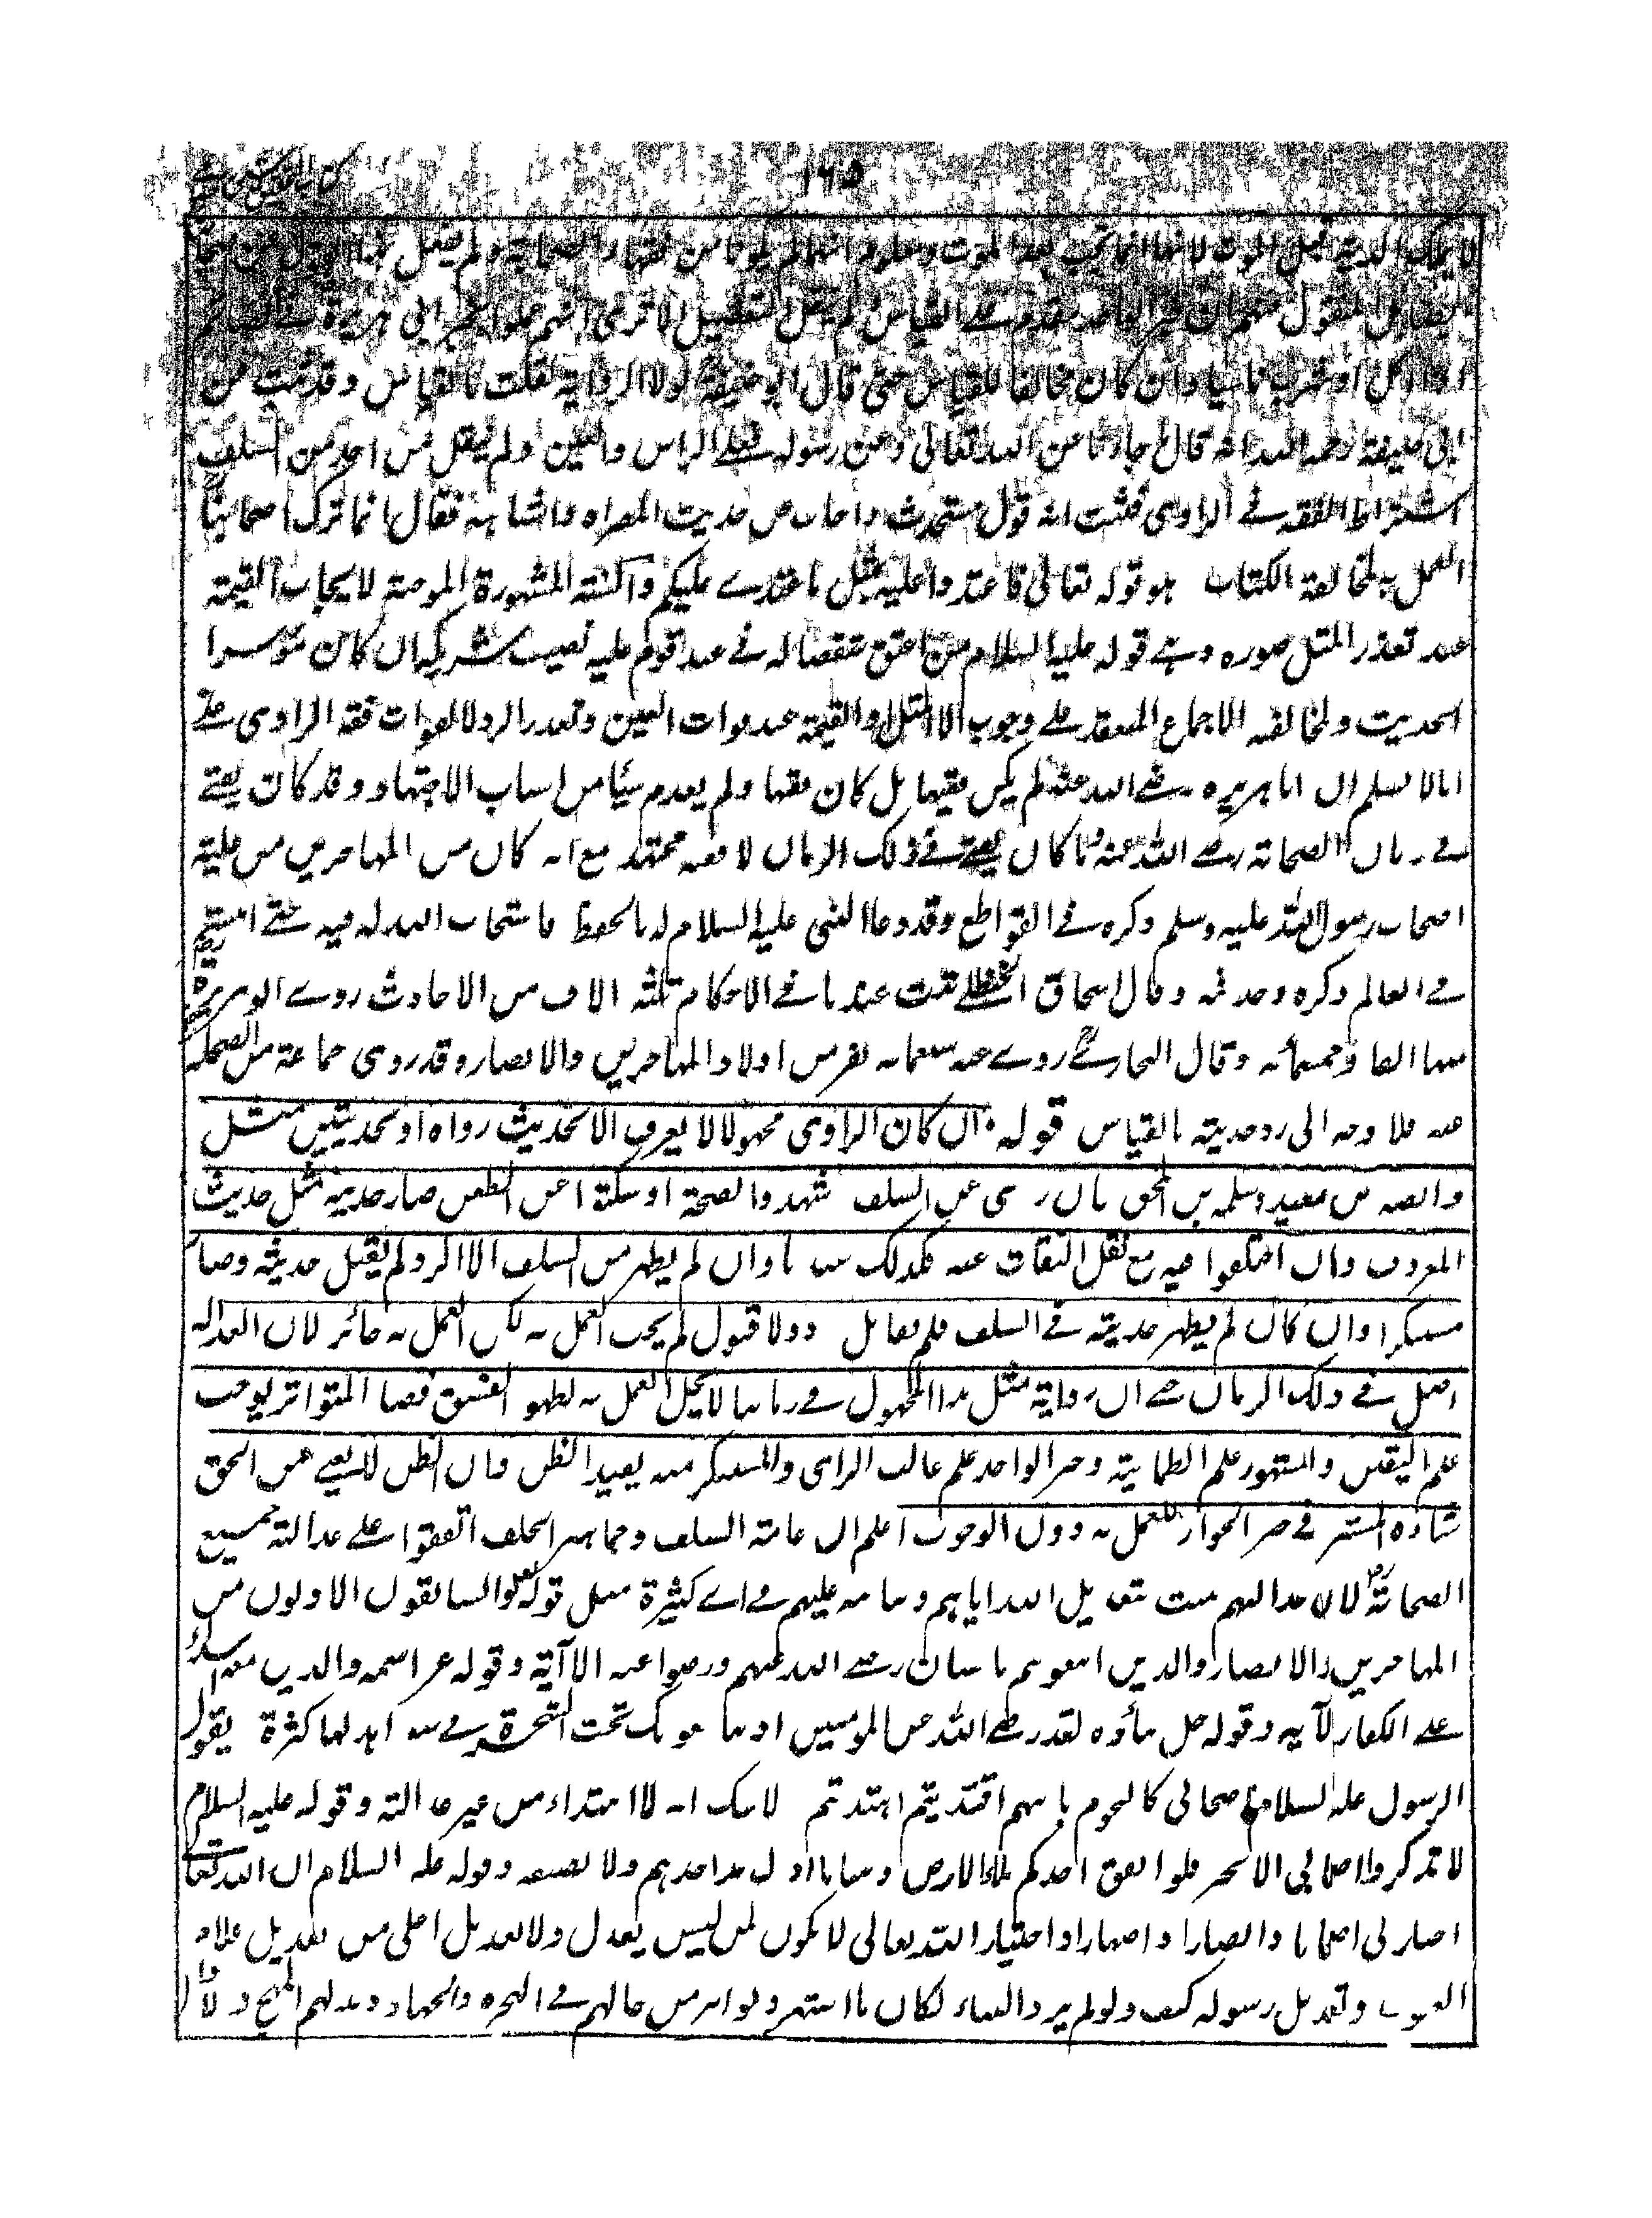 ١٦٥
لا يملك الدية قبل الموت لانها انما تجب بعد الموت ومعلوم انهما لم يكونا من فقهاء الصحابة ولم ينقل هذا القول عن اصحابنا
ايضا بل المنقول عنهم ان خبر الواحد مقدم على القياس ولم ينقل التفصيل الا ترى انهم عملوا بخبر ابى هريرة فى الصائم
اذا اكل او شرب ناسيا وان كان مخالفا للقياس حتى قال ابو حنيفة لولا الرواية لقلت بالقياس وقد ثبت عن
ابى حنيفة رحمه الله انه قال ما جاءنا عن الله تعالى وعن رسوله فعلى الراس والعين ولم ينقل من احد من السلف
اشتراط الفقه فى الراوى فثبت انه قول مستحدث واجاب عن حديث المصراة واشباهه فقال انما ترك اصحابنا
العمل به لمخالفة الكتاب هو قوله تعالى فاعتدوا عليه بمثل ما اعتدى عليكم والسنة المشهورة الموجبة لايجاب القيمة
عند تعذر المثل صورة وهى قوله عليه السلام من اعتق شقصا له فى عبد قوم عليه نصيب شريكه ان كان موسرا
الحديث ولمخالفة الاجماع المنعقد على وجوب المثل او القيمة عند فوات العين وتعذر الرد لا لفوات فقه الراوى على
انا لا نسلم ان ابا هريرة رضى الله عنه لم يكن فقيها بل كان فقيها ولم يعدم شيئا من اسباب الاجتهاد وقد كان يفتى
فى زمان الصحابة رضى الله عنه وما كان يفتى فى ذلك الزمان الا فقيه مجتهد مع انه كان من المهاجرين من علية
اصحاب رسول الله عليه وسلم ذكره فى القواطع وقد دعا النبى عليه السلام له بالحفظ فاستجاب الله له فيه حتى انتشر
فى العالم ذكره وحديثه وقال اسحاق الحنظلى ثبت عندنا فى الاحكام ثلثة الاف من الاحاديث روى ابو هريرة
منها الفا وخمسمائة وقال البخارى روى عنه سبعمائة نفر من اولاد المهاجرين والانصار وقد روى جماعة من الصحابة
عنه فلا وجه الى رد حديثه بالقياس قوله وان كان الراوى مجهولا لا يعرف الا بحديث رواه او بحديثين مثل
وابصة بن معبد وسلمة بن المحبق فان روى عن السلف شهدوا لصحة او سكتوا عن الطعن صار حديثه مثل حديث
المعروف وان اختلفوا فيه مع نقل الثقات عنه فكذلك عندنا وان لم يظهر من السلف الا الرد لم يقبل حديثه وصار
مستنكرا وان كان لم يظهر حديثه فى السلف فلم يقابل برد ولا قبول لم يجب العمل به لكن العمل به جائز لان العدالة
اصل فى ذلك الزمان حتى ان رواية مثل هذا المجهول فى زماننا لا يحل العمل به لظهور الفسق فصار المتواتر يوجب
علم اليقين والمشهور علم الطمانينة وخبر الواحد علم غالب الراى والمستنكر منه يفيد الظن وان الظن لا يغنى من الحق
شيئا والمستتر فى حيز الجواز للعمل به دون الوجوب اعلم ان عامة السلف وجماهير الخلف اتفقوا على عدالة جميع
الصحابة رض لان عدالتهم ثبتت بتعديل الله اياهم وثنائه عليهم فى اى كثيرة مثل قوله تعالى والسابقون الاولون من
المهاجرين والانصار والذين اتبعوهم باحسان رضى الله عنهم ورضوا عنه الاآية وقوله عز اسمه والذين معه اشداء
على الكفار الآية وقوله جل ثناؤه لقد رضى الله عن المومنين اذ يبايعونك تحت الشجرة فى شواهد لها كثرة يقول
الرسول عليه السلام اصحابى كالنجوم بايهم اقتديتم اهتديتم لا شك انه لا اهتداء من غير عدالة وقوله عليه السلام
لا تذكروا اصحابى الا بخير فلو انفق احدكم ملأ الارض ذهبا ما ادرك مد احدهم ولا نصيفه وقوله عليه السلام ان الله تعالى
اختار لى اصحابا وانصارا واصهارا واختيار الله تعالى لا يكون لمن ليس بعدل ولا تعديل اعلى من تعديل علام
الغيوب وتعديل رسوله كيف ولو لم يرد الثناء لكان ما اشتهر وتواتر من حالهم فى الهجرة والجهاد وبذلهم المهج والاموال